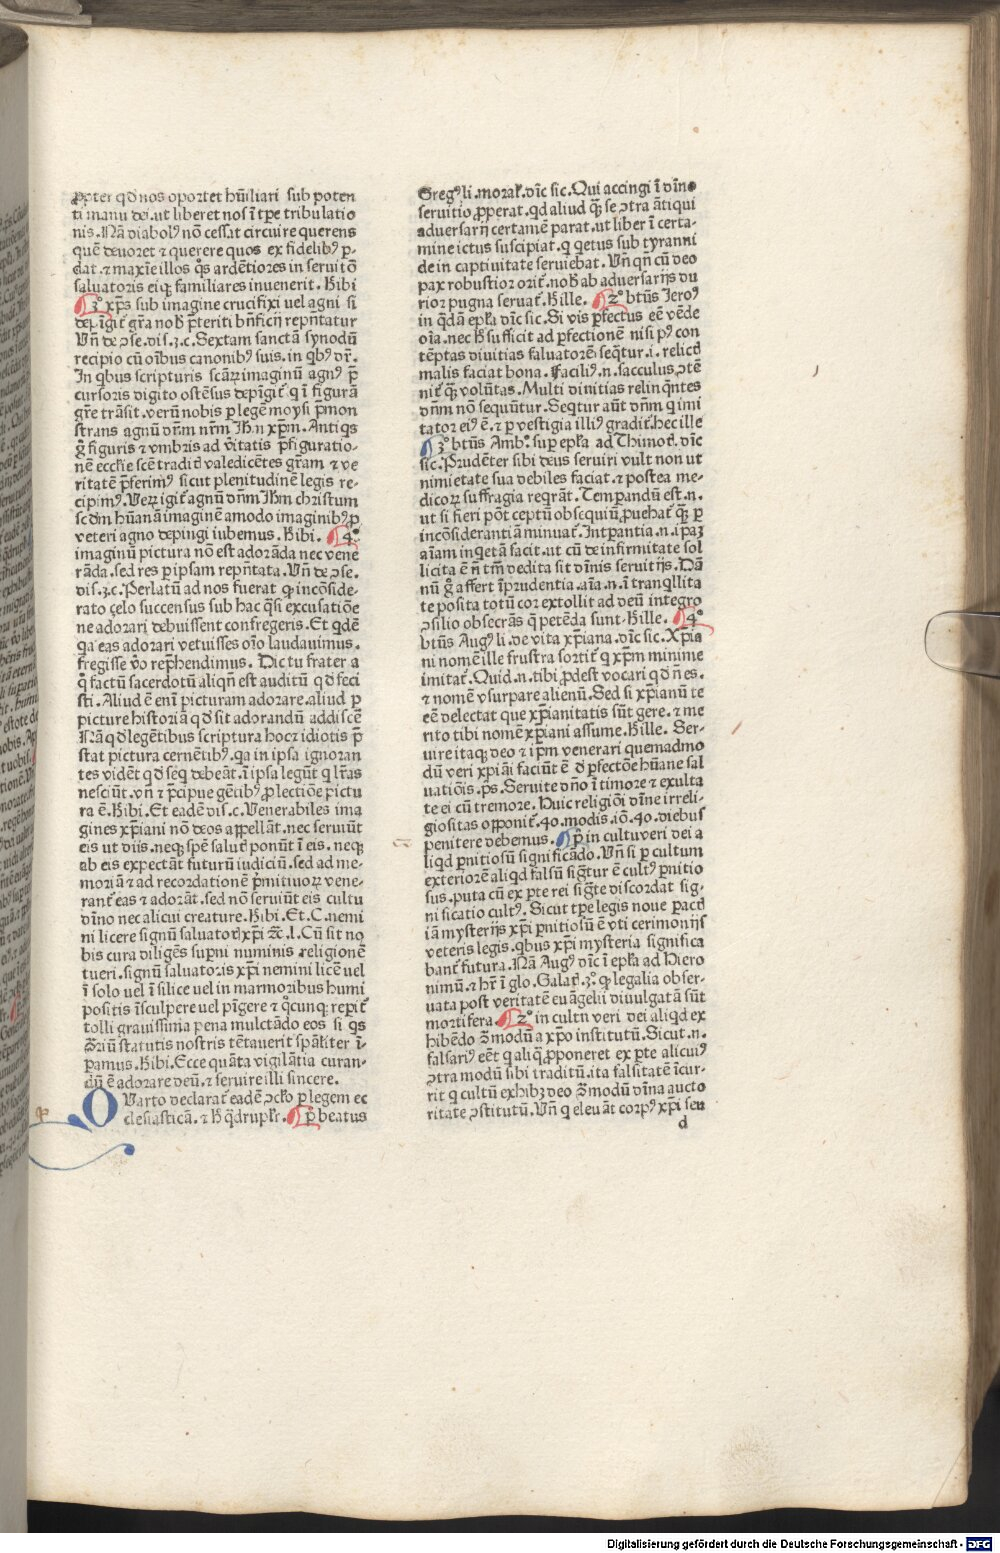 ꝓpter qd nos oportet hūiliari sub poten
ti manu dei.ut liberet nos ī tꝑe tribulatio
nis. Nā diabolꝰ nō cessat circuire querens
quē deuoret ⁊ querere quos ex fidelibꝰ ꝑ-
dat.⁊ maxīe illos q̄s ardētiores in seruitō
saluatoris eiꝗ familiares inuenerit. Hibi
3° xp̄s sub imagine crucifixi uel agni si
depīgit̄ gr̄a nob̄ p̄teriti bn̄ficij rep̄ntatur
Vn̄ de ꝯse.dis.3.c. Sextam sanctā synodū
recipio cū oībus canonibꝰ suis.in qbꝰ dr̄.
In qbus scripturis scāꝝ imaginū agnꝰ p̄
cursoris digito ostēsus depīgit̄ q ī figurā
gr̄e trāsit.verū nobis ꝑ legē moysi p̄mon
strans agnū dn̄m nr̄m Ih̄n xp̄m. Antiqs
g̊ figuris ⁊ vmbris ad v̄itatis p̄figuratio-
nē ecc̄ie scē traditꝭ valedicētes gr̄am ⁊ ve
ritatē p̄ferimꝰ sicut plenitudinē legis re-
cipimꝰ. Veꝝ igit̄ agnū dn̄m Ih̄m christum
scd̄m hūanā imaginē amodo imaginibꝰ ꝓ
veteri agno depingi iubemus. Hibi. 4°
imaginū pictura nō est adorāda nec vene
rāda.sed res ꝑ ipsam rep̄ntata. Vn̄ de ꝯse.
dis.3.c. Perlatū ad nos fuerat ꝙ incōside-
rato çelo succensus sub hac q̄si excusatiōe
ne adorari debuissent confregeris. Et qdē
qa eas adorari vetuisses oīo laudauimus.
fregisse v̊o rep̄hendimus. Dic tu frater a
q̊ factū sacerdotū aliqn̄ est auditū qd feci
sti. Aliud ē enī picturam adorare.aliud ꝑ
picture historiā qd sit adorandū addiscē
Nā qd legētibus scriptura hocꝫ idiotis p̄
stat pictura cernētibꝰ.qa in ipsa ignoran
tes vidēt qd seq debeāt.ī ipsa legūt q lr̄as
nesciūt.vn̄ ⁊ p̄cipue gētibꝰ ꝓ lectiōe pictu
ra ē. Hibi. Et eadē dis.c. Venerabiles ima
gines xp̄iani nō deos appellāt.nec seruiūt
eis ut diis.neqꝫ spē salutꝭ ponūt ī eis.neqꝫ
ab eis expectāt futurū iudiciū.sed ad me-
moriā ⁊ ad recordationē p̄mitiuoꝝ vene-
rant̄ eas ⁊ adorāt.sed nō seruiūt eis cultu
diīno nec alicui creature. Hibi. Et.C. nemi
ni licere signū saluatorꝭ xp̄i ⁊c̄.l. Cū sit no
bis cura diligēs sup̄ni numinis religionē
tueri.signū saluatoris xp̄i nemini licē uel
ī solo uel ī silice uel in marmoribus humi
positis īsculpere uel pīgere ⁊ q̊cunqꝫ reꝑit̄
tolli grauissima pena mulctādo eos si qs
ꝯ̄riū statutis nostris tētauerit spāliter ī-
ꝑamus. Hibi. Ecce quāta vigilātia curan-
dū ē adorare deū.⁊ seruire illi sincere.
QVarto declarat̄ eadē ꝯclo ꝑ legem ec
clesiasticā.⁊ h̄ q̄drupl̄r. p̄ beatus
Gregꝰ li.moral̄.dīc sic. Qui accingi ī dīno
seruitio ꝓperat.qd aliud qꝫ se ꝯtra ātiqui
aduersarij certamē parat.ut liber ī certa-
mine ictus suscipiat.q qetus sub tyranni
de in captiuitate seruiebat. Vn̄ qn̄ cū deo
pax robustior orit̄.nob̄ ab aduersarijs du
rior pugna seruat̄. Hille. 2° btūs Ieroꝰ
in q̄dā epl̄a dīc sic. Si vis ꝑfectus eē vēde
oīa.nec h̄ sufficit ad ꝑfectionē nisi pꝰ con
tēptas diuitias saluatorē seqtur.i.relictꝭ
malis faciat bona. Faciliꝰ.n.sacculus ꝯtē
nit̄ qꝫ volūtas. Multi diuitias relinqntes
dn̄m nō sequūtur. Seqtur aūt dn̄m q imi
tator eiꝰ ē.⁊ ꝑ vestigia illiꝰ gradit̄. hec ille
3° btūs Amb°. sup epl̄a ad Thimotꝭ. dīc
sic. Prudēter sibi deus seruiri vult non ut
nimietate sua debiles faciat.⁊ postea me-
dicoꝝ suffragia reqrāt. Temꝑandū est.n.
ut si fieri pōt ceptū obsequiū ꝓuehat̄ qꝫ ꝑ
incōsiderantiā minuat̄. Intꝑantia.n.ipaꝫ
aīam inqetā facit.ut cū de infirmitate sol
licita ē n̄ tm̄ dedita sit diīnis seruitijs. Dā
nū g̊ affert īprudentia.aīa.n.ī tranqllita
te posita totū cor extollit ad deū integro
ꝯsilio obsecrās q̄ petēda sunt. Hille. 4°
btūs Augꝰ li.de vita xp̄iana.dīc sic. Xp̄ia
ni nomē ille frustra sortit̄ q xp̄m minime
imitat̄. Quid.n.tibi ꝓdest vocari qd n̄ es.
⁊ nomē vsurpare alienū. Sed si xp̄ianū te
eē delectat que xp̄ianitatis sūt gere.⁊ me
rito tibi nomē xp̄iani assume. Hille. Ser-
uire itaqꝫ deo ⁊ ip̄m venerari quemadmo
dū veri xp̄iāi faciūt ē d̄ ꝑfectōe hūane sal
uatiōis.ps̄. Seruite dn̄o ī timore ⁊ exulta
te ei cū tremore. Huic religiōi diīne irreli-
giositas opponit̄.40.modis.iō.40.diebus
penitere debemus. p̄ in cultu veri dei a
liqd ꝑnitiosū significādo. Vn̄ si ꝑ cultum
exteriorē aliqd falsū sig̅tur ē cultꝰ ꝑnitio
sus.puta cū ex ꝑte rei sig̅te discordat sig-
nificatio cultꝰ. Sicut tꝑe legis noue ꝑactꝭ
iā mysterijs xp̄i ꝑnitiosū ē vti cerimonijs
veteris legis.qbus xp̄i mysteria significa
bant̄ futura. Nā Augꝰ dīc ī epl̄a ad Hiero
nimū.⁊ hr̄ ī glo. Galatꝭ.3°.ꝙ legalia obser-
uata post veritatē euāgelii diuulgatā sūt
mortifera. 2° in cultu veri dei aliqd ex
hibēdo ꝯ̄ modū a xp̄o institutū. Sicut.n.
falsariꝰ eēt q aliq̄ ꝓponeret ex ꝑte alicuiꝰ
ꝯtra modū sibi traditū.ita falsitatē īcur-
rit q cultū exhibꝫ deo ꝯ̄ modū diīna aucto
ritate ꝯstitutū. Vn̄ q eleuāt corpꝰ xp̄i seu
d
Digitalisierung gefördert durch die Deutsche Forschungsgemeinschaft - DFG